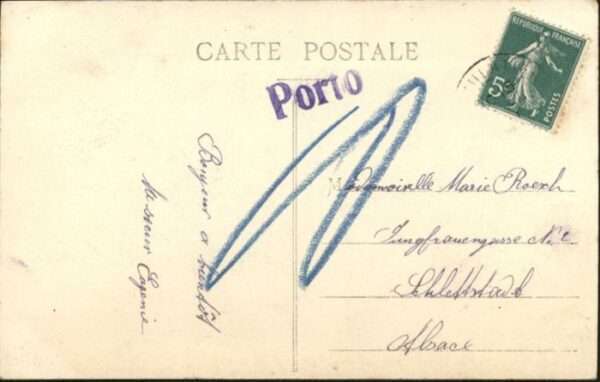 CARTE POSTALE
REPUBLIQUE FRANÇAISE
5c
POSTES
Porto
Bonjour a bientôt
Monsieur Eugenie
Mademoiselle Marie Roesch
Jungfrauengasse No
Schlettstadt
Alsace